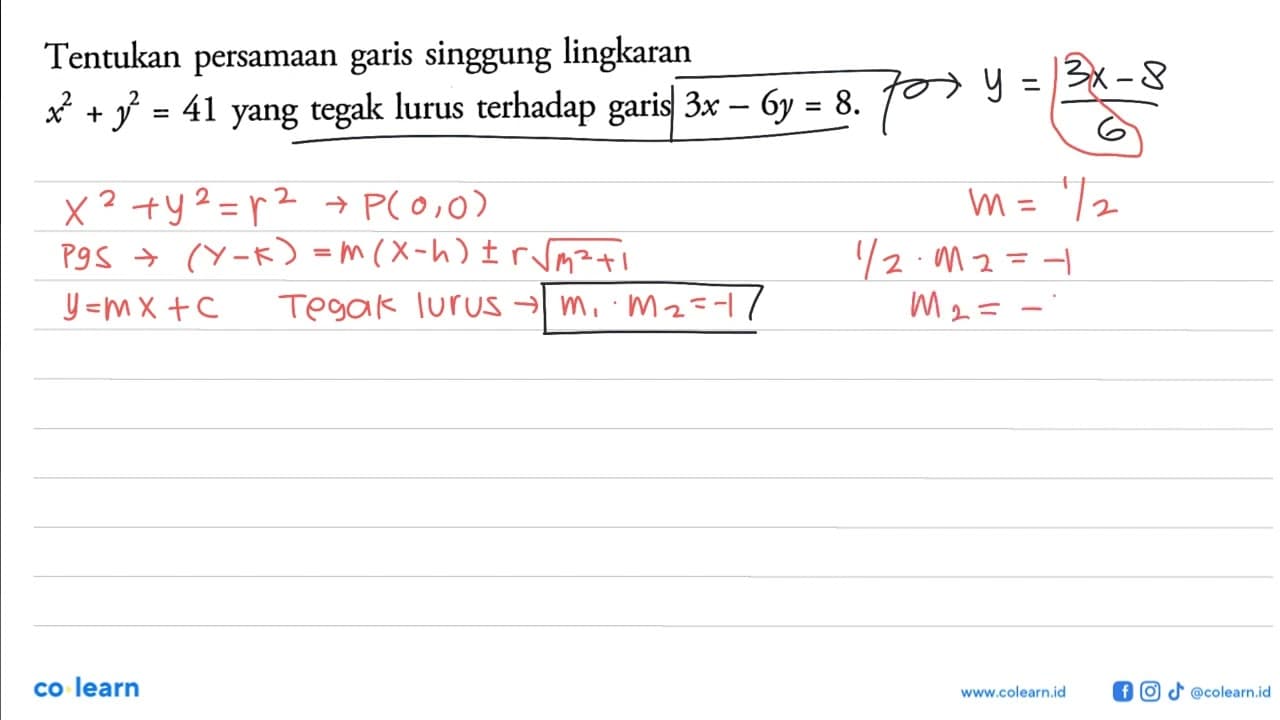 Tentukan persamaan garis singgung lingkaran
x² + y² = 41 yang tegak lurus terhadap garis 3x – 6y = 8. → y = 3x – 8 / 6
x² + y² = r² → P(0,0)
m = 1/2
Pgs → (y – k) = m(x – h) ± r√m²+1
1/2 · m2 = –1
y = mx + c Tegak lurus → m₁ · m₂ = –1
m2 = –
co learn
www.colearn.id
@colearn.id